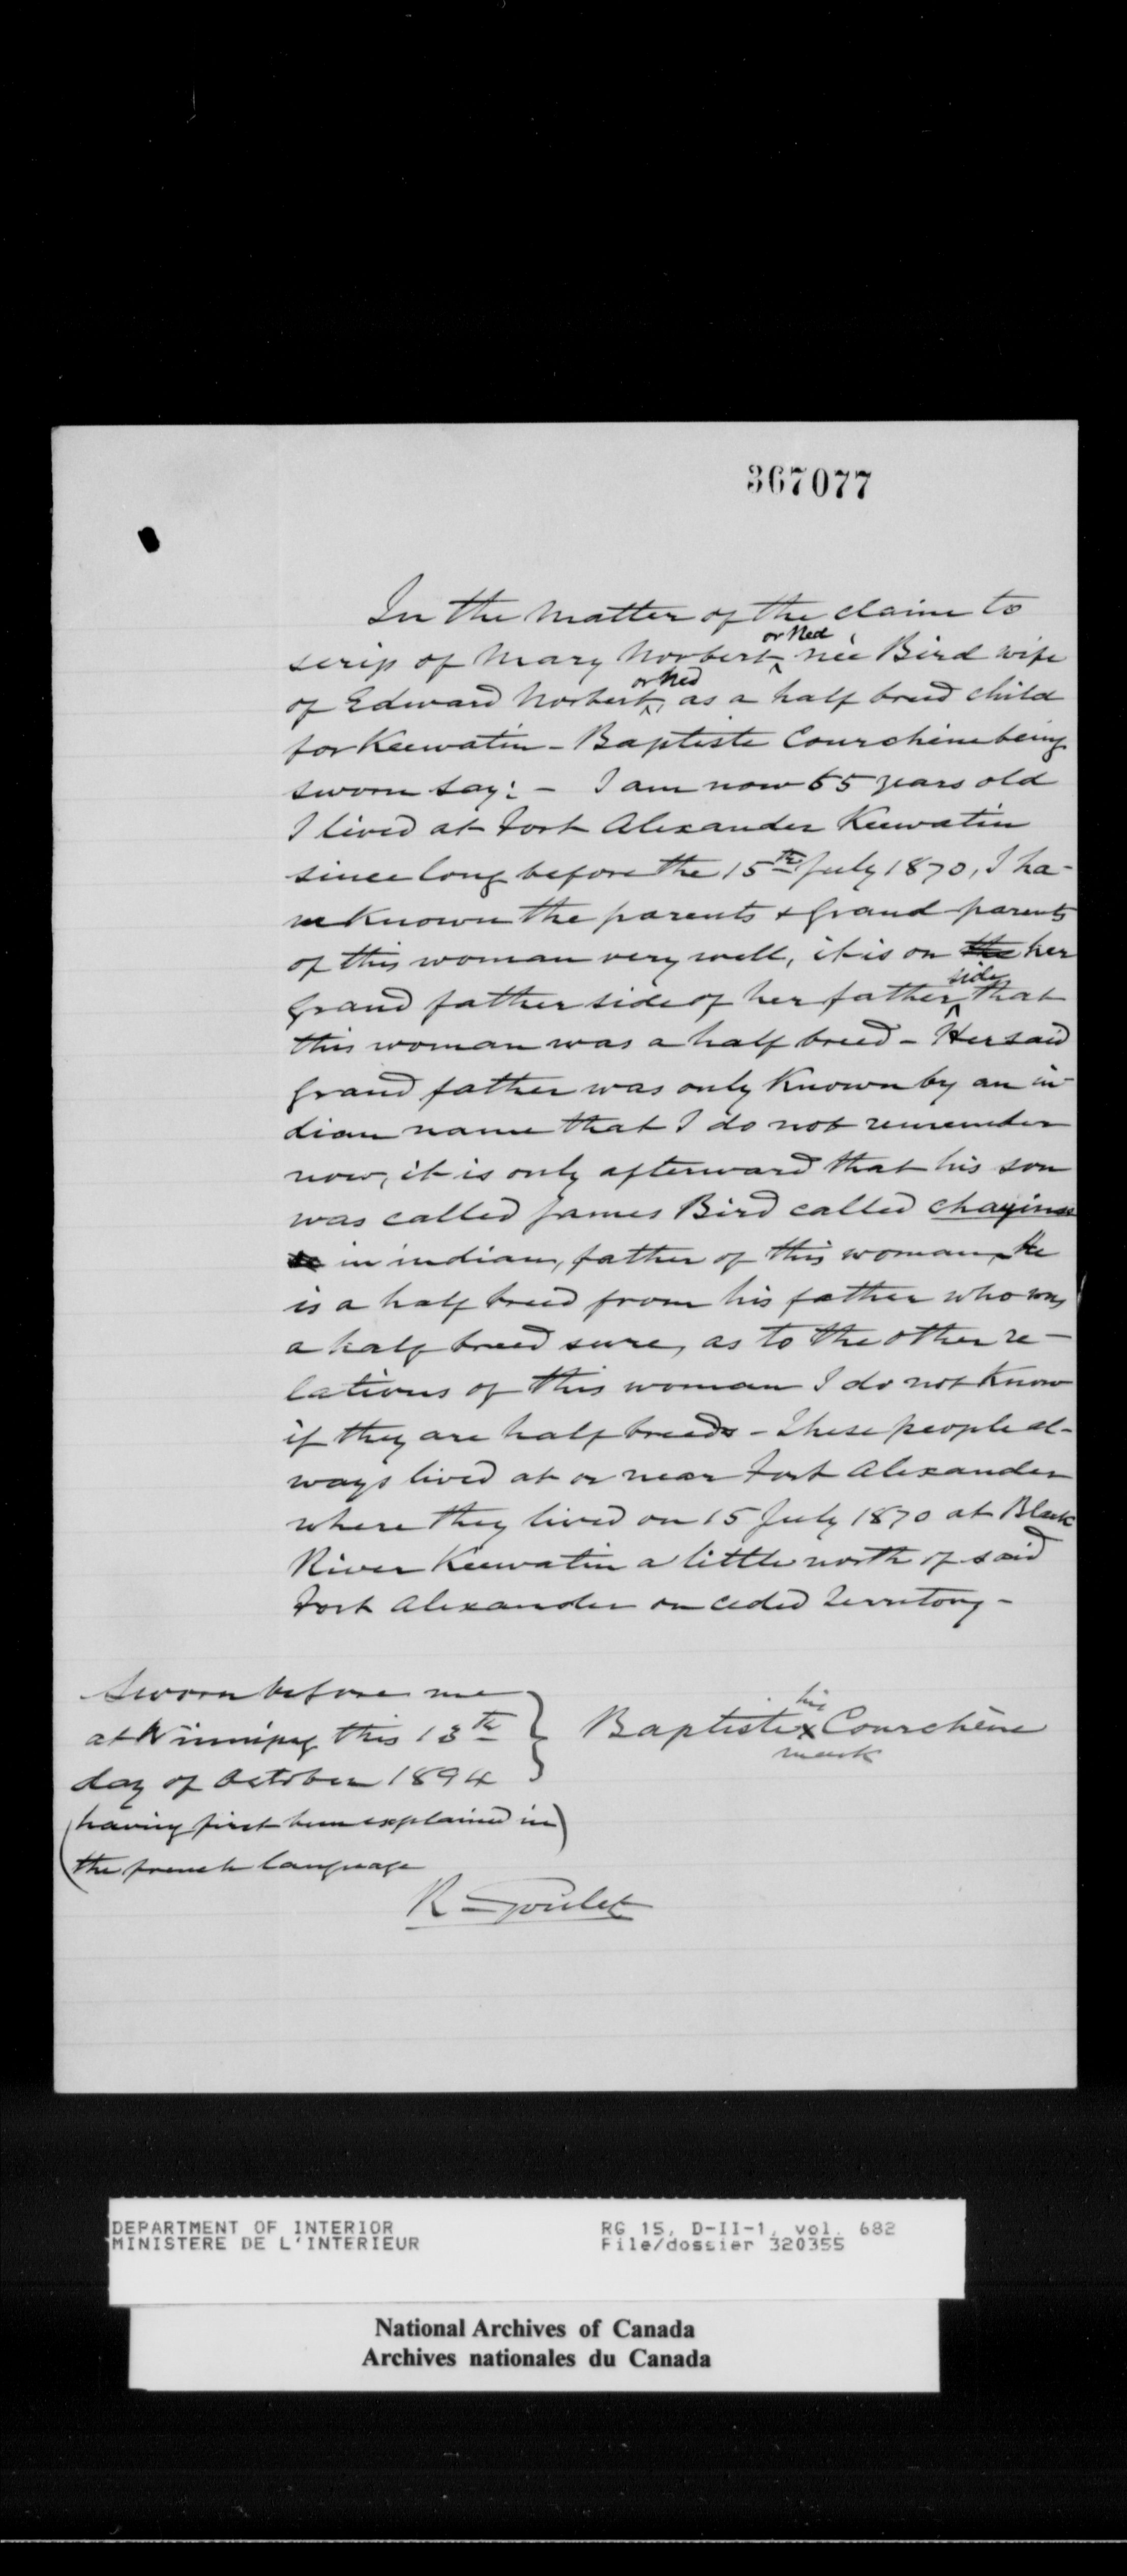 367077
In the Matter of the claim to
scrip of Mary Norbert or Ned née Bird wife
of Edward Norbert or Ned, as a half breed child
for Keewatin - Baptiste Courchène being
sworn say: - I am now 55 years old
I lived at Fort Alexander Keewatin
since long before the 15th July 1870, I ha-
ve known the parents & Grand-parents
of this woman very well, it is on the her
Grand father side of her father side that
this woman was a half breed - Her said
Grand father was only known by an in-
dian name that I do not remember
now, it is only afterward that his son
was called James Bird called
in indian, father of this woman, He
is a half breed from his father who was
a half breed sure, as to the other re-
lations of this woman I do not know
if they are half breeds - These people al-
ways lived at or near Fort Alexander
where they lived on 15 July 1870 at Black
River Keewatin a little north of said
Fort Alexander on ceded Territory -
Sworn before me
at Winnipeg this 13th
day of October 1894
(having first been explained in
the french language)
Baptiste his x mark Courchène
R Goulet
DEPARTMENT OF INTERIOR
MINISTERE DE L'INTERIEUR
RG 15, D-II-1, vol. 682
File/dossier 320355
National Archives of Canada
Archives nationales du Canada